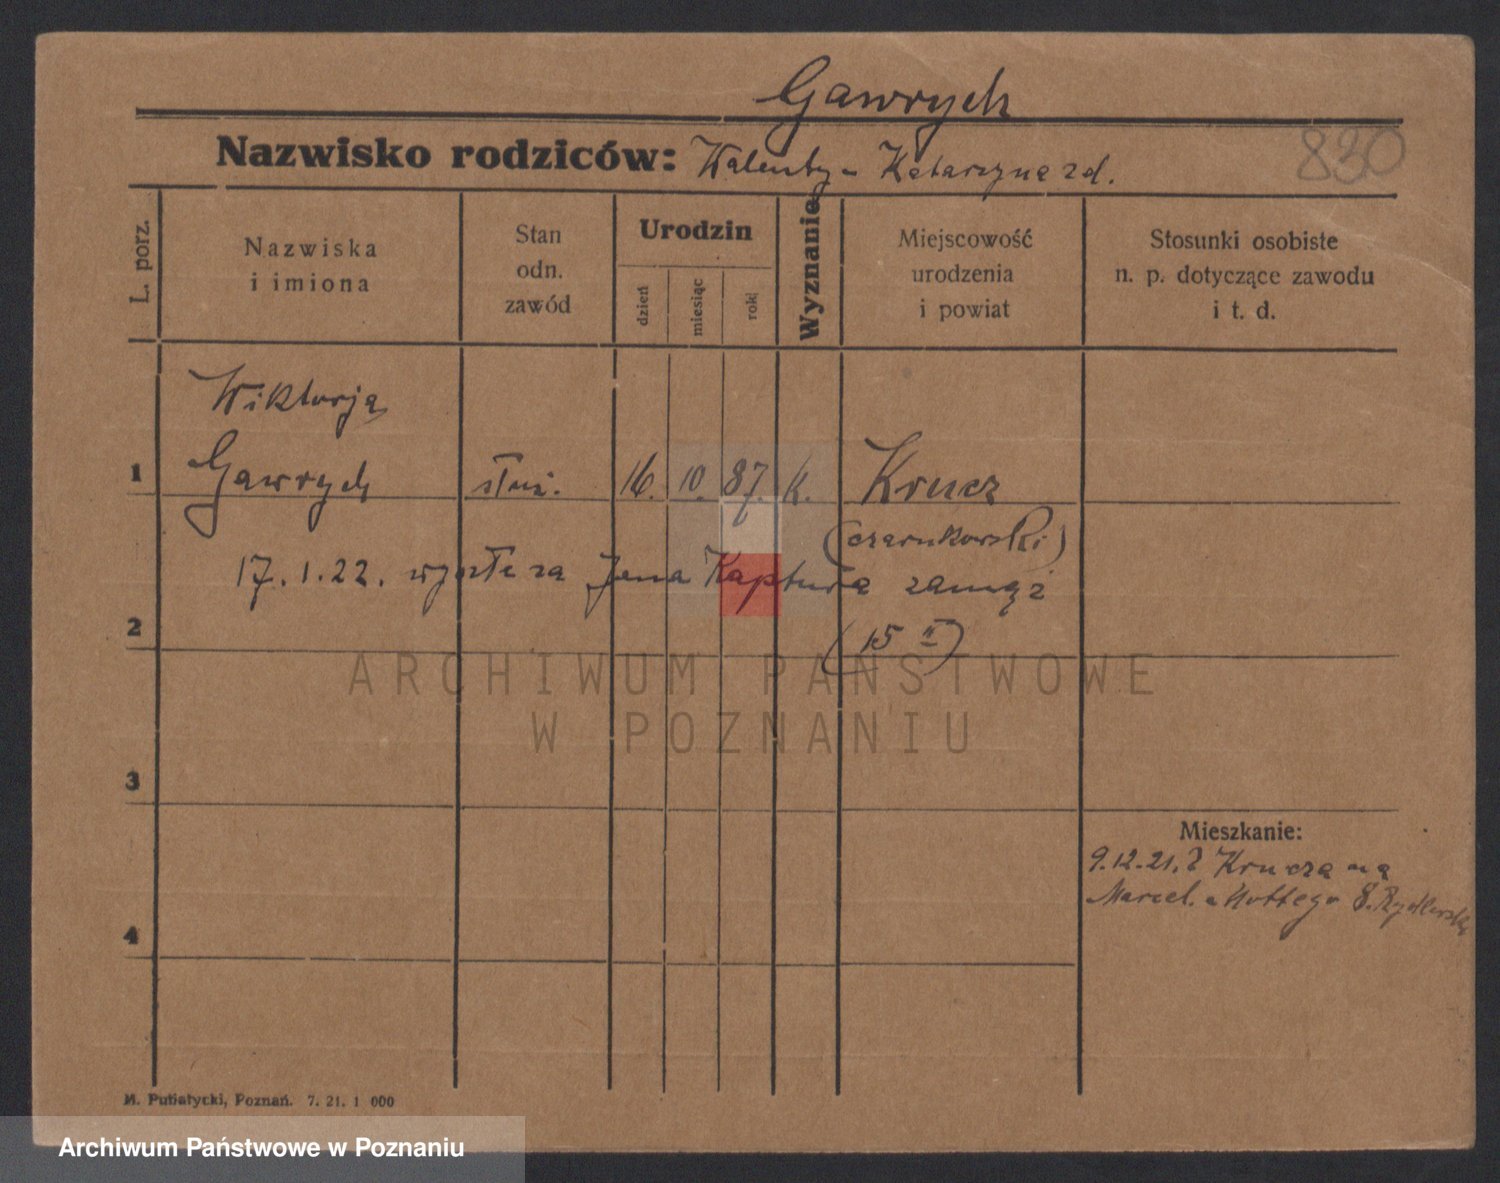 Gawrych
830
Nazwisko rodziców: Walenty - Katarzyna zd.
L. porz.
Nazwiska
i imiona
Stan
odn.
zawód
Urodzin
dzień
miesiąc
rok
Wyznanie
Miejscowość
urodzenia
i powiat
Stosunki osobiste
n. p. dotyczące zawodu
i t. d.
Wiktorja
1 Gawrych służ. 16. 10. 87. k. Krucz
(czarnkowski)
17.1.22. wyszła za Jana Kaptura zamąż
2 (15 II)
ARCHIWUM PAŃSTWOWE
W POZNANIU
3
Mieszkanie:
9.12.21. z Krucza na
Marcel. u Hottego 8. 
4
M. Putiatycki, Poznań. 7. 21. 1 000
Archiwum Państwowe w Poznaniu